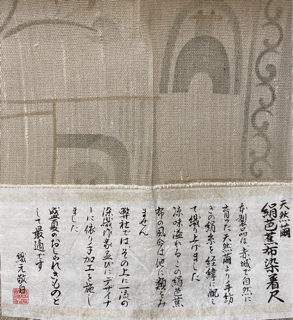 天然繭
絹芭蕉布染着尺
本製品は、赤城で自然に
育った天然繭より手紡
ぎの絹糸を経緯に配し
て織り上げました
涼味溢れるこの絹芭蕉
布の風合は他に類をみ
ません
弊社では、その上に一流の
染織作家並びにデザイナ
ーに依り手加工を施し
ました
盛夏のおしゃれきものと
して最適です